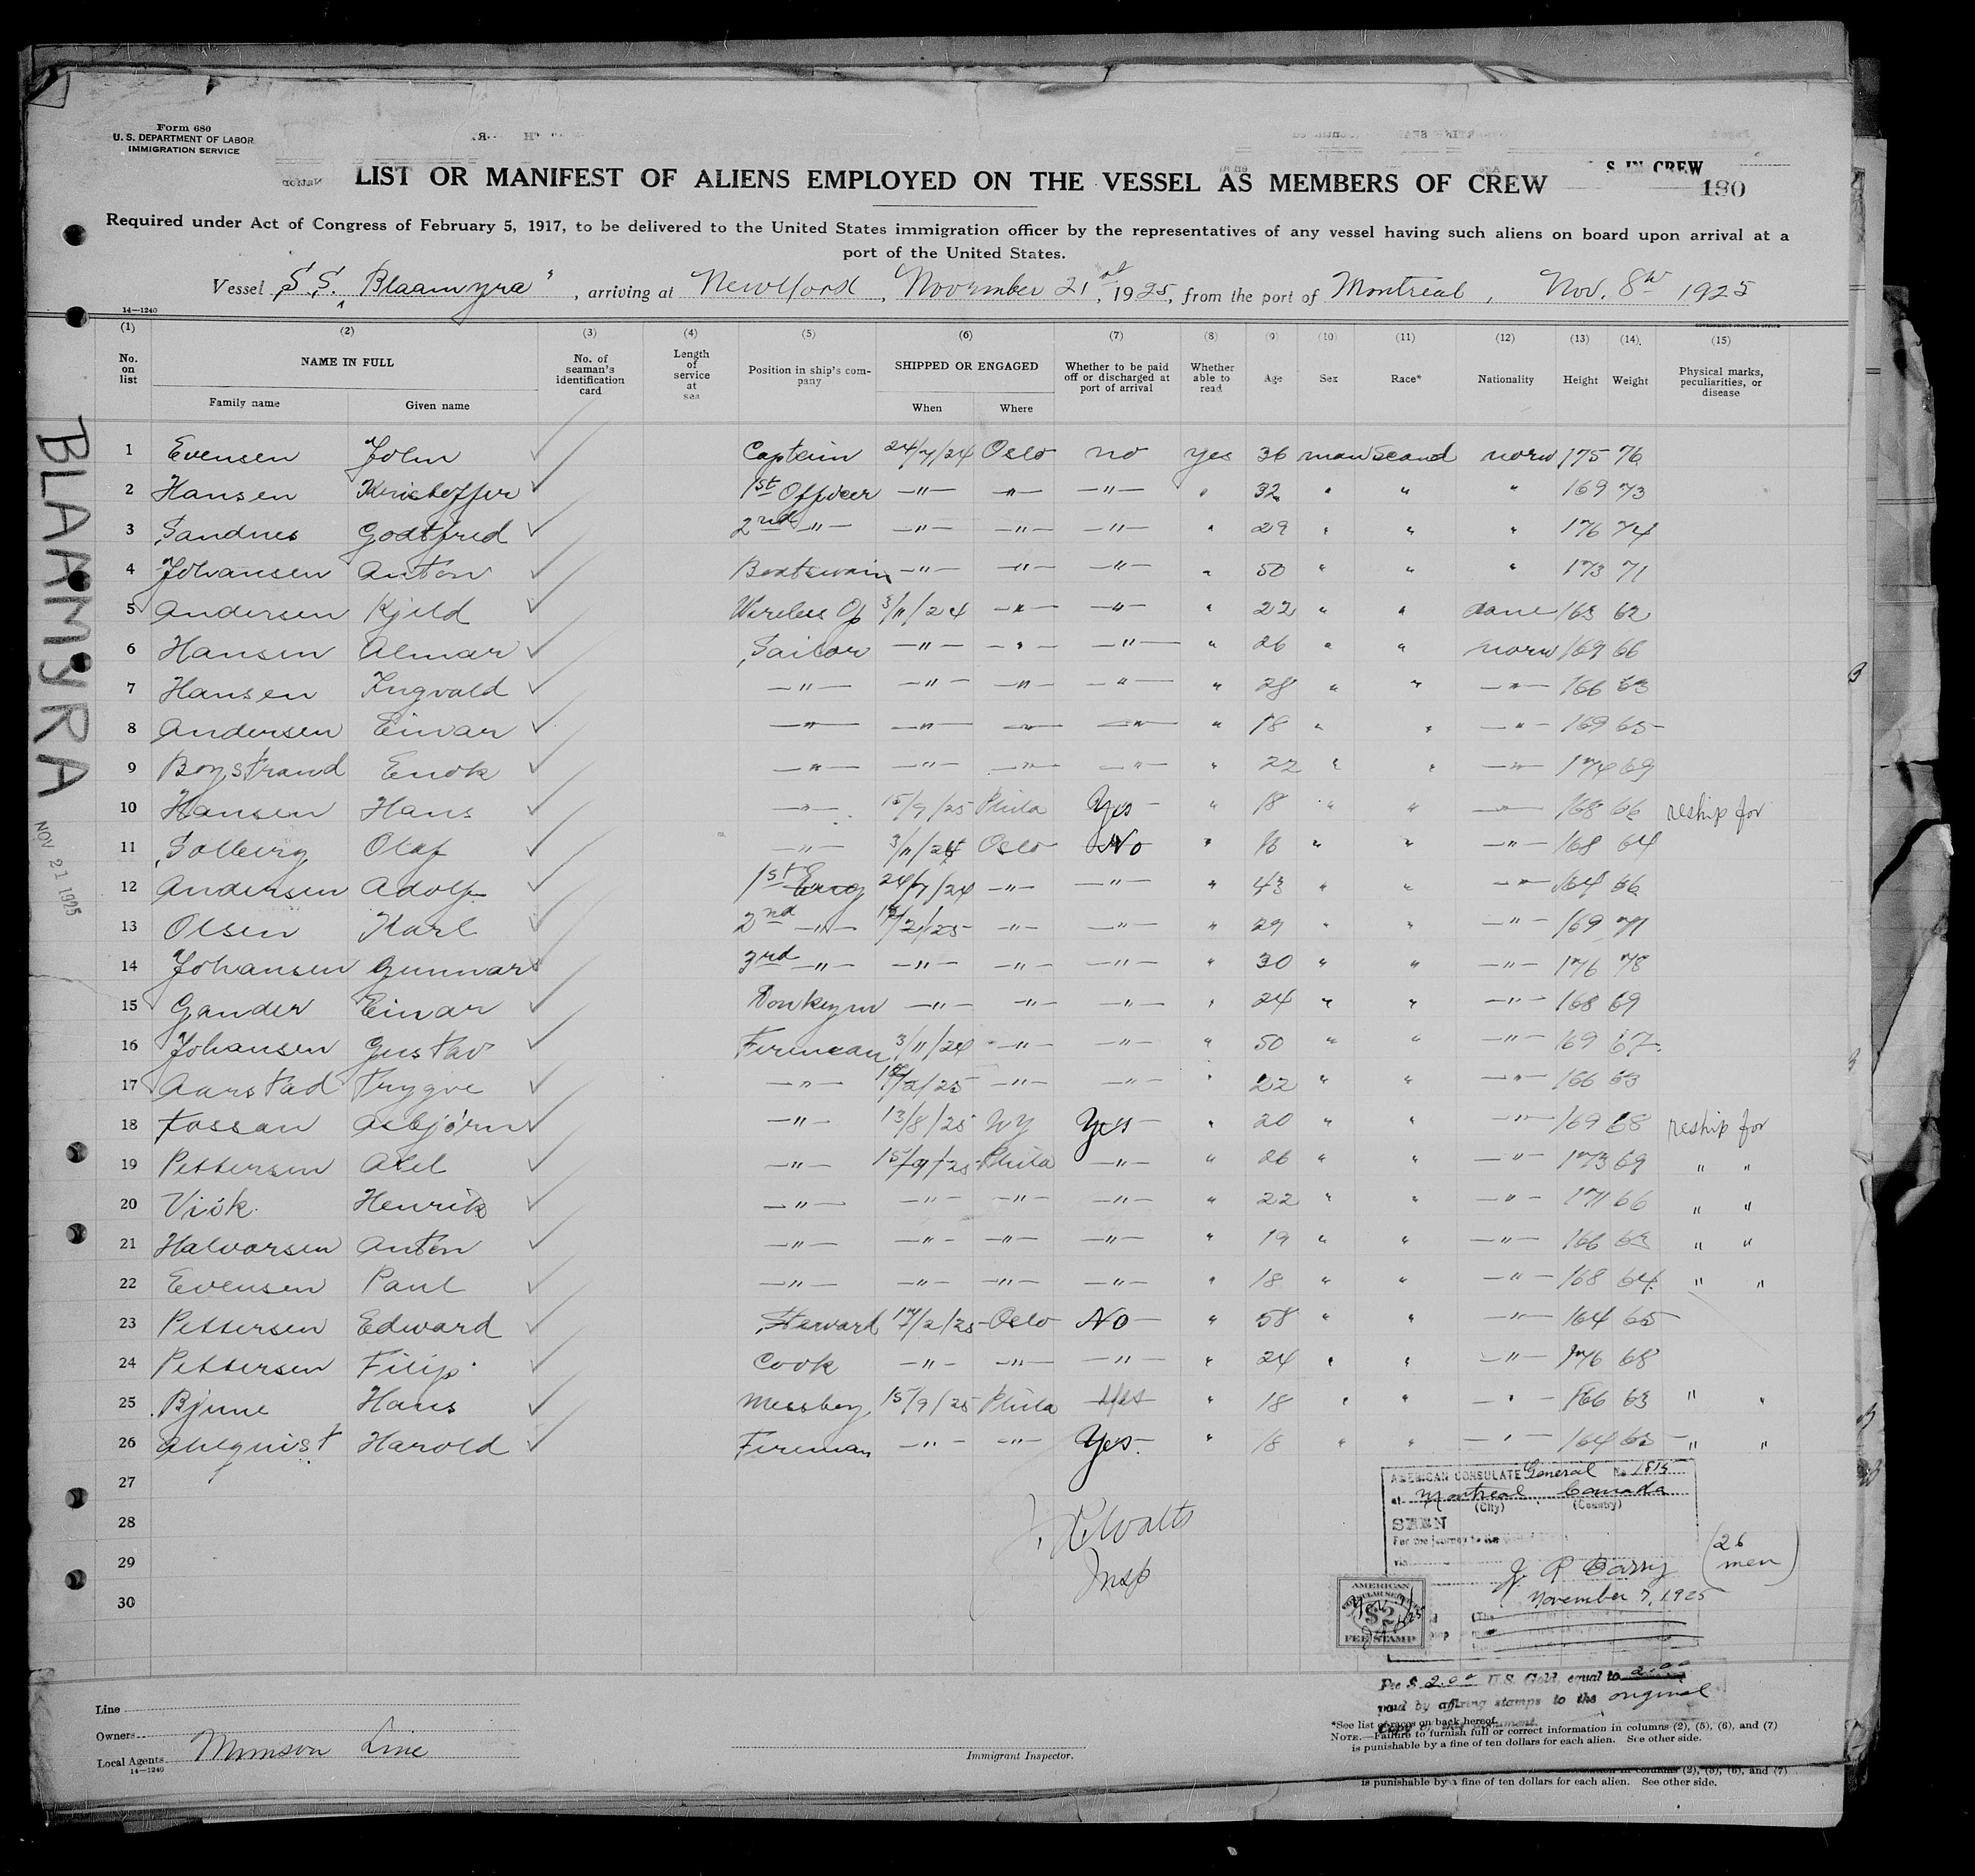 Form 680
U. S. DEPARTMENT OF LABOR
IMMIGRATION SERVICE
S IN CREW
190
LIST OR MANIFEST OF ALIENS EMPLOYED ON THE VESSEL AS MEMBERS OF CREW
Required under Act of Congress of February 5, 1917, to be delivered to the United States immigration officer by the representatives of any vessel having such aliens on board upon arrival at a
port of the United States.
Vessel S.S. "Blaamyra", arriving at , November 21st, 1925, from the port of Montreal, Nov. 8th 1925
14—1240
(1) (2) (3) (4) (5) (6) (7) (8) (9) (10) (11) (12) (13) (14) (15)
No. on list NAME IN FULL No. of seaman's identification card Length of service at sea Position in ship's company SHIPPED OR ENGAGED Whether to be paid off or discharged at port of arrival Whether able to read Age Sex Race* Nationality Height Weight Physical marks, peculiarities, or disease
Family name Given name When Where
1 Evensen John Captain 24/7/24 Oslo no yes 36 man Scand norw 175 76
2 Hansen Kristoffer 1st Officer —"— —"— —"— " 32 " " " 169 73
3 Sandnes Godtfred 2nd —"— —"— —"— —"— " 29 " " " 176 74
4 Johansen Anton Boatswain —"— —"— —"— " 50 " " " 173 71
5 Andersen Kjeld Wireless Op 3/11/24 —"— —"— " 22 " " Dane 163 62
6 Hansen Almar Sailor —"— —"— —"— " 26 " " norw 169 66
7 Hansen Ingvald —"— —"— —"— —"— " 28 " " —"— 166 63
8 Andersen Einar —"— —"— —"— —"— " 18 " " —"— 169 65
9 Boystrand Enok —"— —"— —"— —"— " 22 " " —"— 174 69
10 Hansen Hans —"— 15/9/25 Phila Yes " 18 " " —"— 168 66 reship for
11 Solberg Olaf —"— 3/11/24 Oslo No " " " —"— 168 64
12 Andersen Adolf 1st Eng 24/7/24 —"— —"— " 43 " " —"— 164 66
13 Olsen Karl 2nd —"— /2/25 —"— —"— " 29 " " —"— 169 71
14 Johansen Gunnar 3rd —"— —"— —"— —"— " 30 " " —"— 176 78
15 Gander Einar Donkeym —"— —"— —"— " 24 " " —"— 168 69
16 Johansen Gustav Fireman 3/11/24 —"— —"— " 50 " " —"— 169 67
17 Aarstad Trygve —"— /2/25 —"— —"— " 22 " " —"— 166 63
18 Fossan Asbjörn —"— 13/8/25 NY Yes " 20 " " —"— 169 68 reship for
19 Pettersen Axel —"— 15/9/25 Phila —"— " 26 " " —"— 173 69 " "
20 Viik Henrik —"— —"— —"— —"— " 22 " " —"— 171 66 " "
21 Halvorsen Anton —"— —"— —"— —"— " 19 " " —"— 166 63 " "
22 Evensen Paul —"— —"— —"— —"— " 18 " " —"— 168 64 " "
23 Pettersen Edward Steward 17/2/25 Oslo No " 58 " " —"— 164 65
24 Pettersen Filip Cook —"— —"— —"— " 24 " " —"— 176 68
25 Bjune Hans Messboy 15/9/25 Phila Yes " 18 " " —"— 166 63 " "
26 Ahlquist Harold Fireman —"— —"— Yes. " 18 " " —"— 164 63 " "
27
28
29
30
BLAAMYRA
NOV 21 1925
Watts
Insp
AMERICAN CONSULATE General No 1815
at Montreal Canada
(City) (Country)
SEEN
For the journey to the
via
J. R. Barry
(26 men)
November 7, 1925
AMERICAN
CONSULAR SERVICE
$2
FEE STAMP
Fee $ 2.00 U.S. Gold, equal to 2.00
paid by affixing stamps to the original
Copy of this document.
Line
Owners
Local Agents Munson Line
14—1240
Immigrant Inspector.
*See list of races on back hereof.
NOTE.—Failure to furnish full or correct information in columns (2), (5), (6), and (7)
is punishable by a fine of ten dollars for each alien. See other side.
in columns (2), (5), (6), and (7)
is punishable by a fine of ten dollars for each alien. See other side.